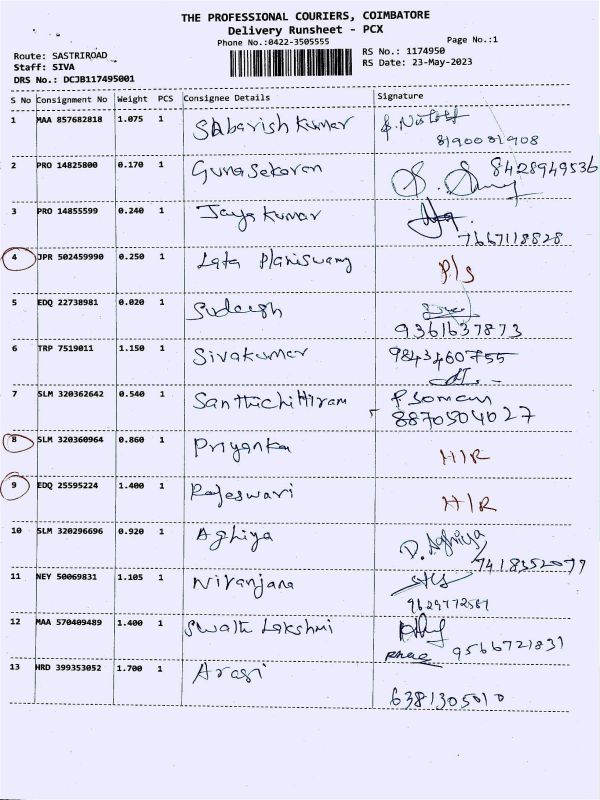 THE PROFESSIONAL COURIERS, COIMBATORE
Delivery Runsheet - PCX
Phone No.:0422-3505555
Page No.:1
Route: SASTRIROAD
RS No.: 1174950
Staff: SIVA
RS Date: 23-May-2023
DRS No.: DCJB117495001
S No Consignment No Weight PCS Consignee Details Signature
1 MAA 857682818 1.075 1 SAbarish Kumar
8190031908
2 PRO 14825800 0.170 1 Gunasekaran 8428949536
3 PRO 14855599 0.240 1 Jaya Kumar
7667118828
4 JPR 502459990 0.250 1 Lata Planiswamy P/s
5 EDQ 22738981 0.020 1 Sudeesh
9361637873
6 TRP 7519011 1.150 1 Sivakumar 9843460755
7 SLM 320362642 0.540 1 Santhichithram P. Soman
8870504027
8 SLM 320360964 0.860 1 Priyanka H/R
9 EDQ 25595224 1.400 1 Rajeswari H/R
10 SLM 320296696 0.920 1 Aghiya D. Aghiya
7418352077
11 NEY 50069831 1.105 1 Niranjana
9629772587
12 MAA 570409489 1.400 1 Swathi Lakshmi
9566721831
13 HRD 399353052 1.700 1 Arasi
6381305010